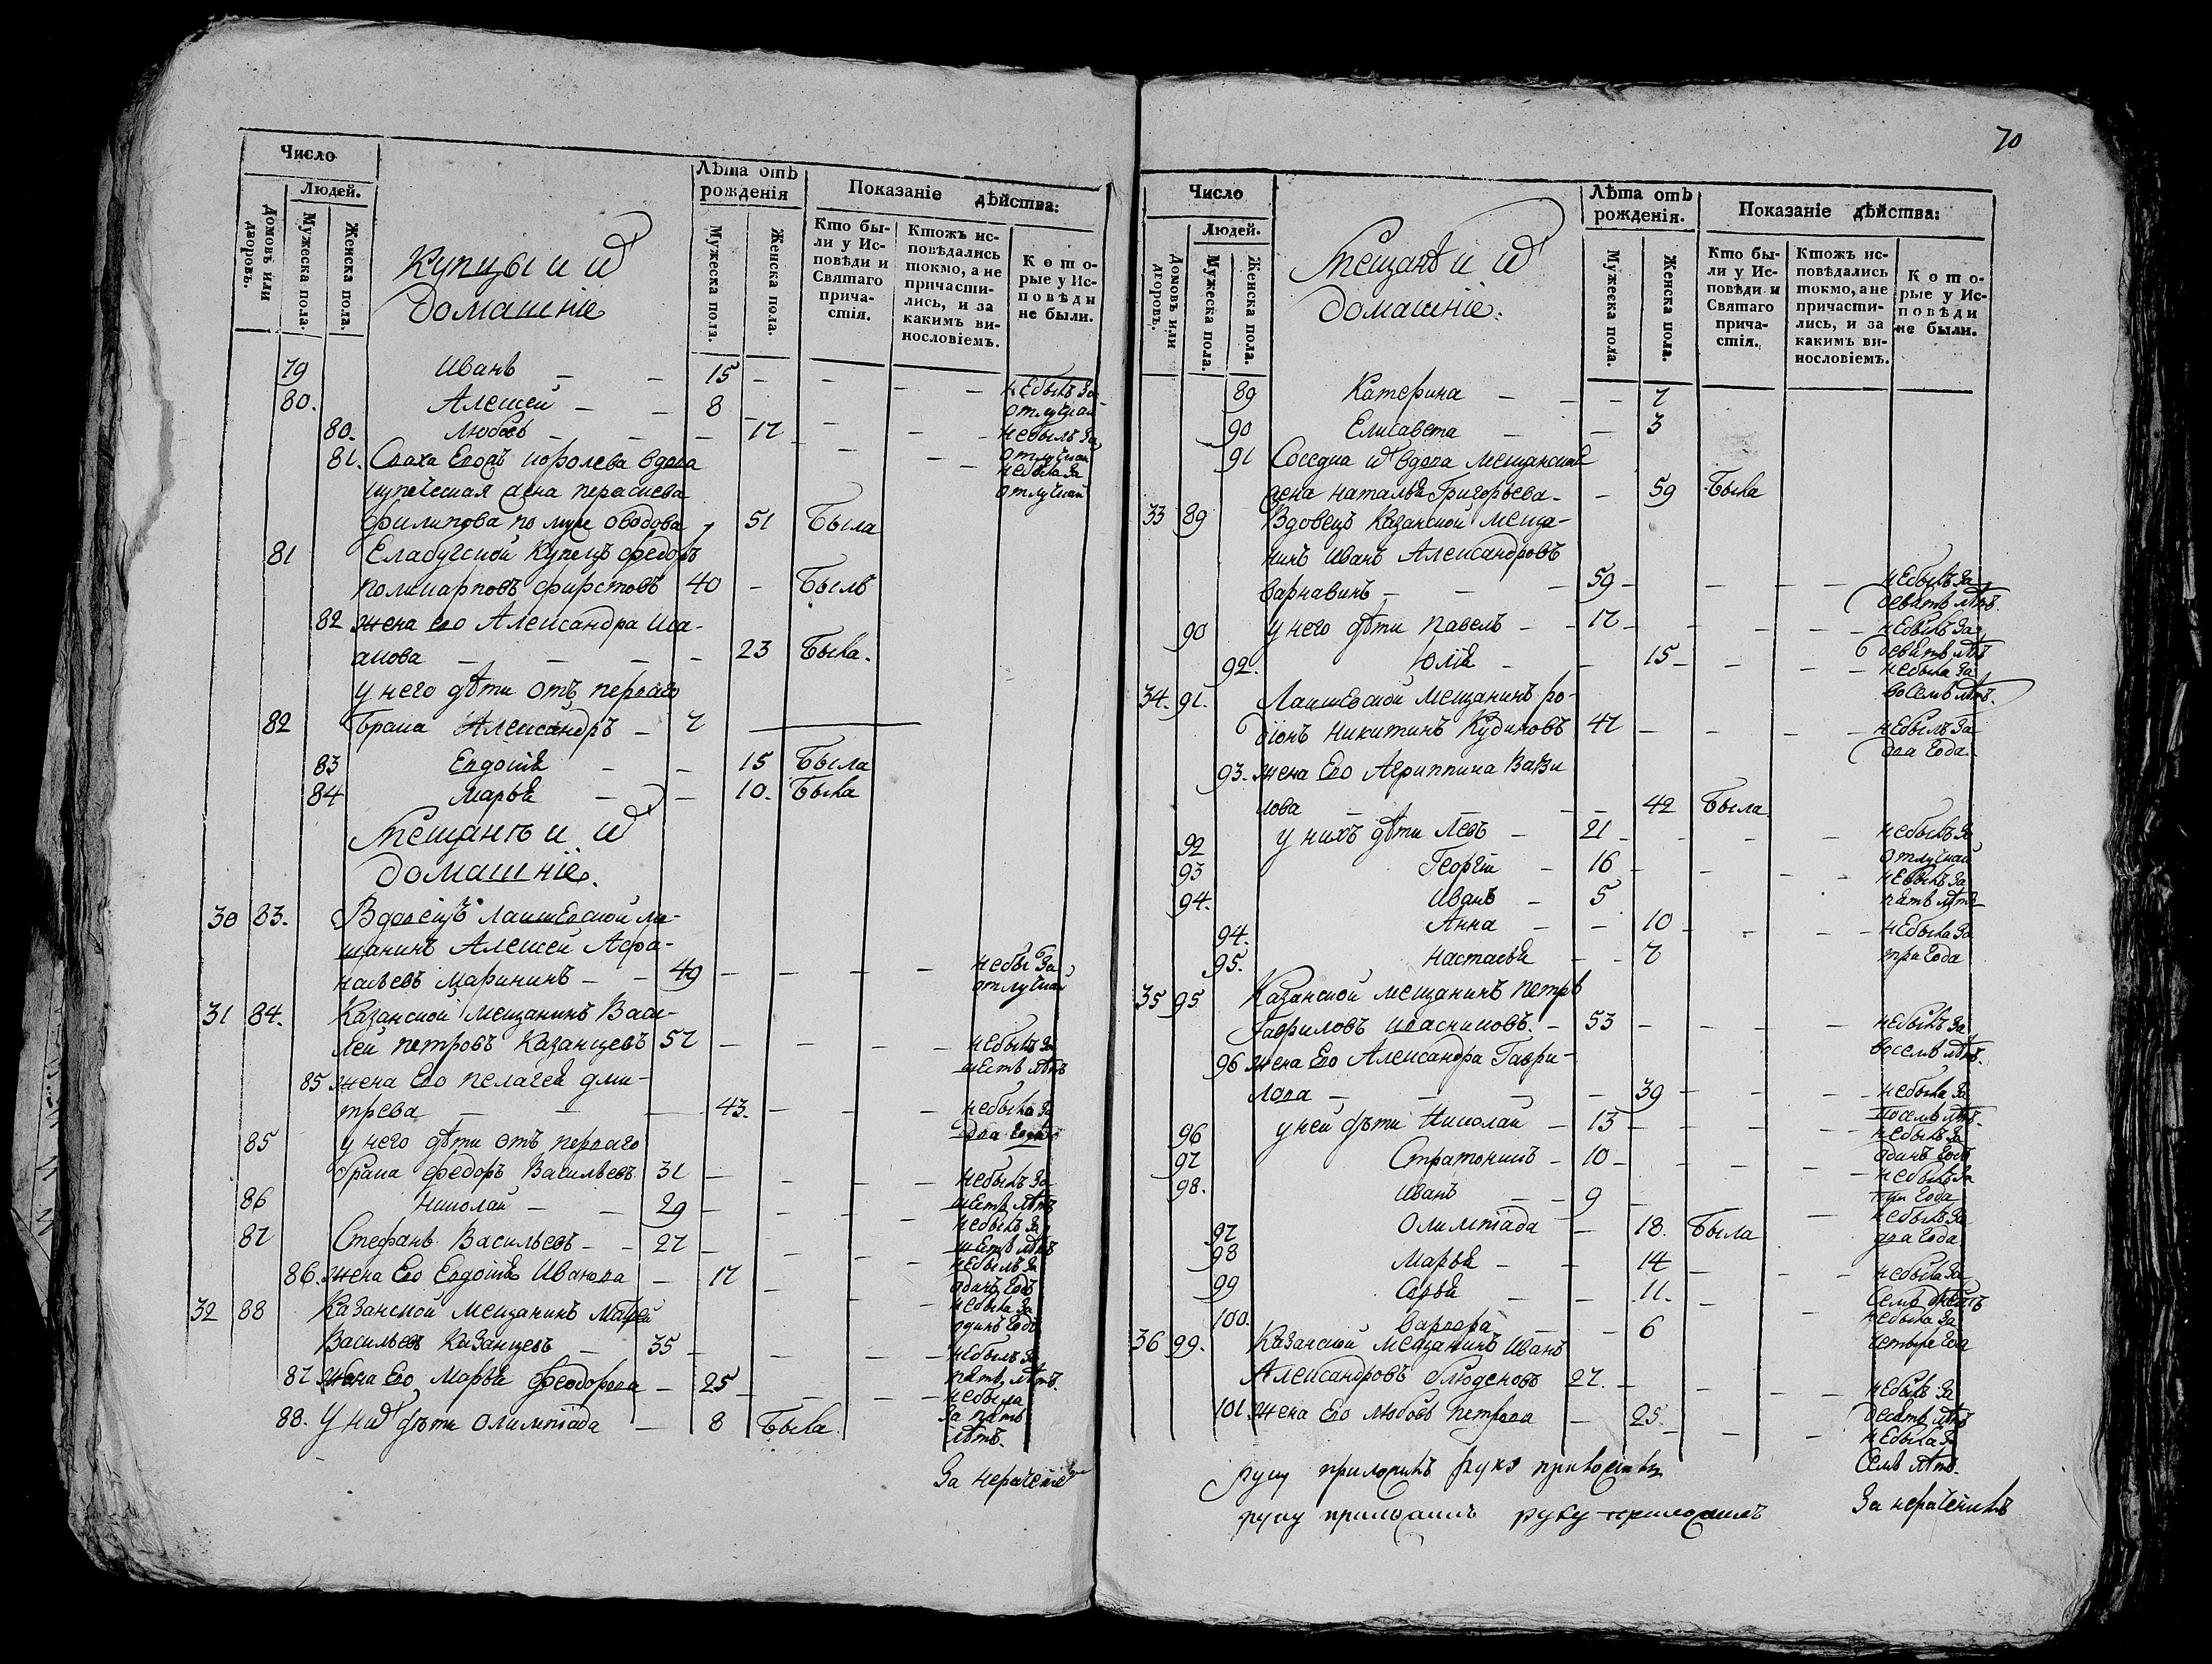 Число
Людей.
Домовъ или дворовъ.
Мужеска пола.
Женска пола.
Купцы и ихъ
домашніе
Лѣта отъ рожденія
Мужеска пола.
Женска пола.
Показаніе дѣйства:
Кто были у Исповѣди и Святаго причастія.
Ктожъ исповѣдались токмо, а не причастились, и за какимъ винословіемъ.
Которые у Исповѣди не были.
79 Иванъ — — 15 — — — — небылъ за отлучкай
80. Алексей — — 8 — — — — небылъ за отлучкай
80. Любовь — — — 17 — — — небыла за отлучкай
81. Сноха Егоръ королева вдова
купеческая жена Параскева
Филипова по муже ободова 51 Была
81 Елабугской Купецъ Федоръ
Поликарповъ Фирстовъ 40 — Былъ
82 жена его Александра Иса-
акова — — — — 23 Была.
у него дѣти отъ перваго
82 брака Александръ — 7
83 Евдокія — — 15 Была
84 Марья — — 10. Была
Мещанѣ и ихъ
домашніе.
30 83. Вдовецъ лаишевской ме-
щанинъ Алексей Афа-
насьевъ Маринин — — 49 — — — — небы за отлучкай
31 84. Казанской Мещанинъ Васи-
лей Петровъ Казанцевъ 57 — — — — небылъ за шесть лѣтъ
85 жена Его Пелагея Дми-
трева — — — 43. — — — небыла за два года
85 у него дѣти отъ перваго
брака Федоръ Васильевъ 31 — — — — небылъ за шесть лѣтъ
86 Николай — — 29 — — — — небылъ за шесть лѣтъ
87 Стефанъ Васильевъ — — 27 — — — — небылъ за одинъ годъ
86. жена Его Евдокія Иванова — 17 — — — небыла за одинъ годъ
32 88 Казанской Мещанинъ Матфей
Васильевъ Казанцевъ — 35 — — — — небылъ за пять лѣтъ.
87 жена Его Марья Феодорова — 25 — — — небыла за пять лѣтъ.
88. У нихъ дѣти Олимпіада — 8 Была.
За нераченіе
70
Число
Людей.
Домовъ или дворовъ.
Мужеска пола.
Женска пола.
Мещанѣ и ихъ
домашніе.
Лѣта отъ рожденія.
Мужеска пола.
Женска пола.
Показаніе дѣйства:
Кто были у Исповѣди и Святаго причастія.
Ктожъ исповѣдались токмо, а не причастились, и за какимъ винословіемъ.
Которые у Исповѣди не были.
89 Катерина — — — 7
90 Елисавета — — 3
91 Соседка ихъ вдова мещанская
жена Наталья Григорьева — — 59 Была
33 89 Вдовецъ Казанской меща-
нинъ Иванъ Александровъ
Варнавинъ — — — 59 — — — — небылъ за девять лѣтъ.
90 у него дѣти Павелъ — — 17 — — — — небылъ за девять лѣтъ
92. Юлія — — 15 — — — небыла за восемь лѣтъ.
34. 91. Лаишевской мещанинъ Ро-
діонъ Никитинъ Кудиковъ 47 — — — — небылъ за два года.
93. жена Его Агриппина Вави
лова — — — — 42 Была
92 у нихъ дѣти Левъ — 21 — — небылъ за отлучкай
93 Георгій — 16 — — — — небылъ за пять лѣтъ
94. Иванъ — 5
94. Анна — — 10 — — — небыла за три года
95. Настасья — — 7
35 95. Казанской мещанинъ Петръ
Гавриловъ Квасниковъ. — 53 — — — — небылъ за восемь лѣтъ.
96 жена Его Александра Гаври-
лова — — — — 39 — — — небыла за восемь лѣтъ.
96 у ней дѣти Николай — 13 — — — — небылъ за одинъ годъ
97 Стратоникъ — 10 — — — — небылъ за три года
98. Иванъ — — 9 — — небылъ за два года
97 Олимпіада — 18. Была
98 Марья — — 14 — — — небыла за семь лѣтъ
99 Софья — — 11. — — небыла за четыре года
100. Варвара — — 6
36 99. Казанской Мещанинъ Иванъ
Александровъ Блюденовъ 27. — — — — небылъ за десять лѣтъ
101 жена Его Любовь Петрова — 25. — — — небыла за семь лѣтъ.
руку приложилъ руку приложилъ
руку приложилъ руку приложилъ
За нераченіемъ